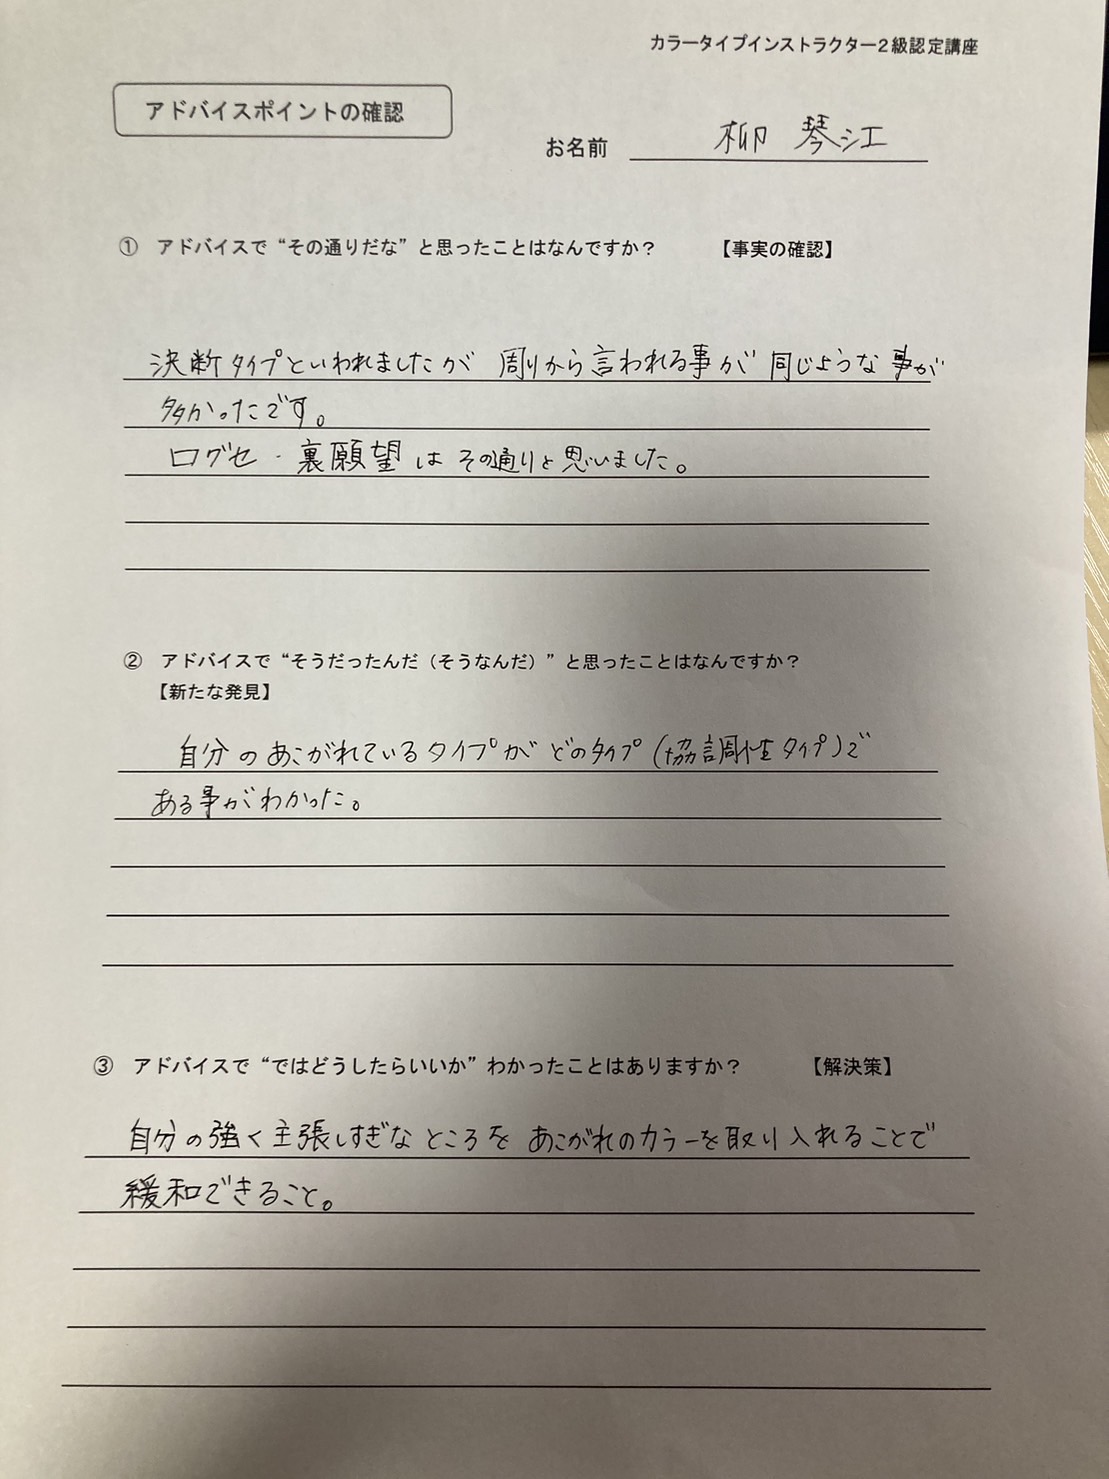 カラータイプインストラクター2級認定講座
アドバイスポイントの確認
お名前 柳 琴江
① アドバイスで“その通りだな”と思ったことはなんですか？ 【事実の確認】
決断タイプといわれましたが 周りから言われる事が 同じような事が
多かったです。
口グセ・裏願望は その通りと思いました。
② アドバイスで“そうだったんだ（そうなんだ）”と思ったことはなんですか？
【新たな発見】
自分のあこがれているタイプが どのタイプ(協調性タイプ)で
ある事がわかった。
③ アドバイスで“ではどうしたらいいか”わかったことはありますか？ 【解決策】
自分の強く主張しすぎなところを あこがれのカラーを取り入れることで
緩和できること。